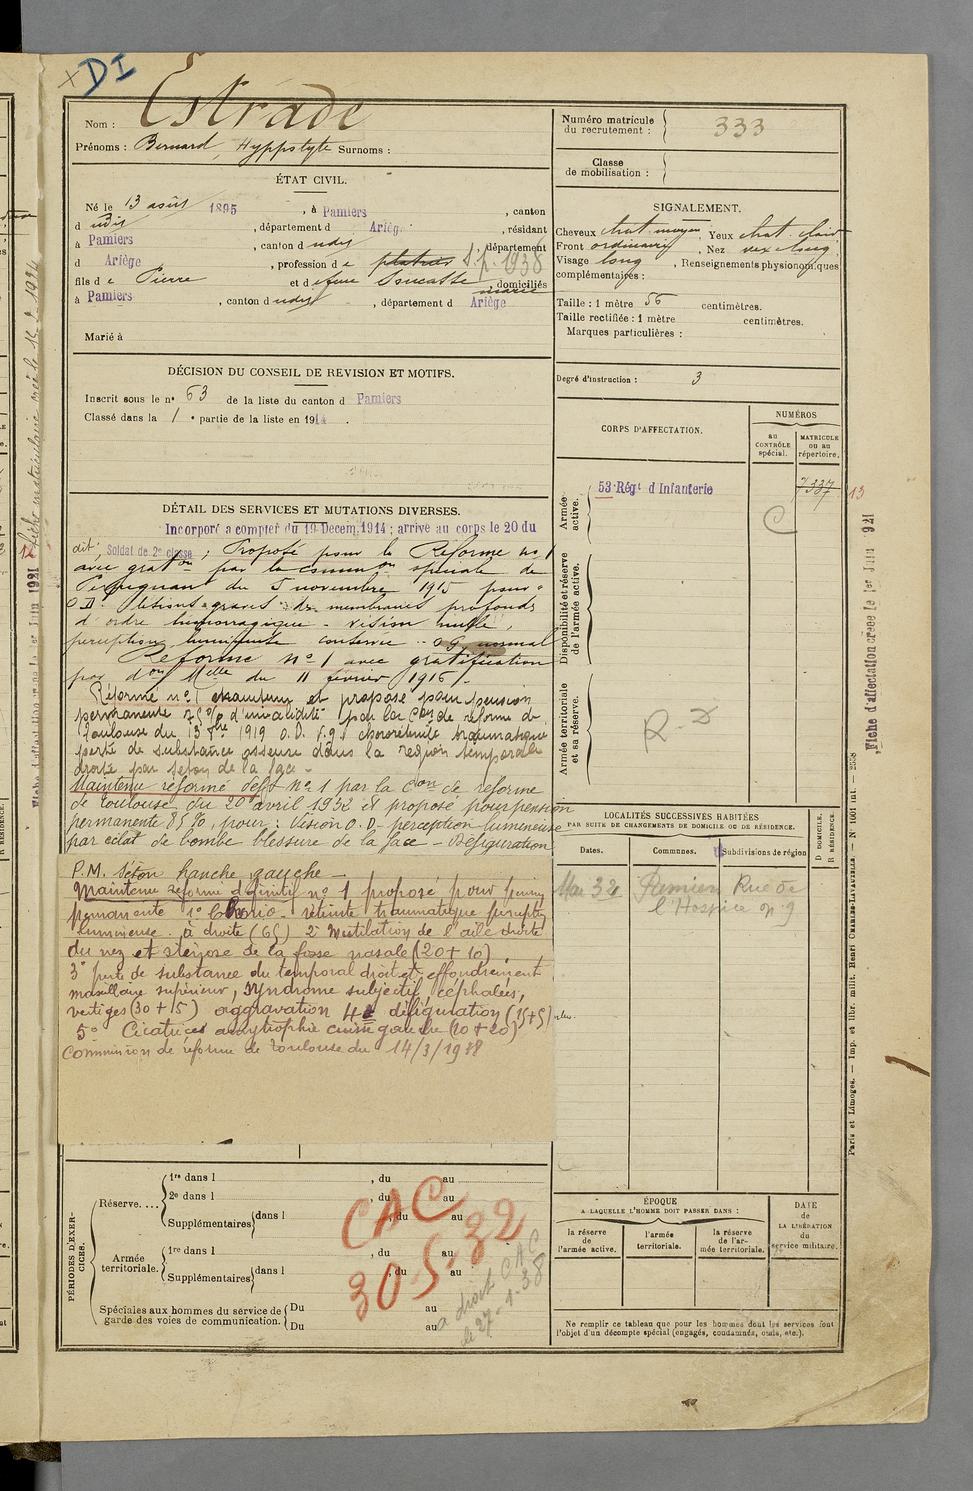 DI
Nom : Estrade
Prénoms : Bernard, Hyppolyte Surnoms :
ÉTAT CIVIL.
Né le 13 août 1895, à Pamiers, canton
d udit, département d Ariège, résidant
à Pamiers, canton d udit, département
d Ariège, profession de platrier S.P. 1938
fils de Pierre et d efeue Soucasse, domiciliés
à Pamiers, canton d udit, département d Ariège
Marié à
DÉCISION DU CONSEIL DE REVISION ET MOTIFS.
Inscrit sous le n° 63 de la liste du canton d Pamiers
Classé dans la 1 e partie de la liste en 1914.
DÉTAIL DES SERVICES ET MUTATIONS DIVERSES.
Incorporé a compter du 19 Decem. 1914 ; arrivé au corps le 20 du
dit, Soldat de 2e classe ; Proposé pour la Réforme no 1
avec grat on par la commion spéciale de
Perpignan du 5 novembre 1915 pour :
O D. lésions graves des membranes profonds
d'ordre hémorragique - vision nulle,
perception lumineuse conservée - O G normal
Réformé no 1 avec gratification
par d on Melle du 11 février 1916.
Réformé no 1 maintenu et proposé pour pension
permanente 75 % d'invalidité par la Con de réforme de
Toulouse du 13 8bre 1919 O.D. V.q. choroïdite traumatique
perte de substance osseuse dans la région temporale
droite par seton de la face -
Maintenu réformé deft no 1 par la Con de reforme
de toulouse du 20 avril 1932 et proposé pour pension
permanente 85 %, pour : Vision O.D. perception lumineuse
par éclat de bombe blessure de la face - Défiguration
P.M. Séton hanche gauche -
Maintenu reforme definitif no 1 proposé pour pension
permanente 1° Chorio- retinite traumatique perception
lumineuse à droite (65) 2° Mutilation de l'aile droite
du nez et sténose de la fosse nasale (20 + 10)
3° perte de substance du temporal droit et effondrement
maxillaire supérieur, syndrome subjectif céphalées,
vertiges (30 + 15) aggravation 4° défiguration (15+5)
5° Cicatrices amyotrophie cuisse gauche (10 + 20)
Commission de réforme de toulouse du 14/3/1938
PÉRIODES D'EXERCICES.
Réserve.... 1re dans l , du au
2e dans l , du au
Supplémentaires dans l , du au
Armée territoriale. 1re dans l , du au
Supplémentaires dans l , du au
Spéciales aux hommes du service de garde des voies de communication. Du au
Du au
CAC
30.5.32
a droit CAC
le 27-1-38
Numéro matricule du recrutement : 333
Classe de mobilisation :
SIGNALEMENT.
Cheveux chat. moyen, Yeux chat. clair
Front ordinaire, Nez vexe long,
Visage long, Renseignements physionomiques
complémentaires :
Taille : 1 mètre 56 centimètres.
Taille rectifiée : 1 mètre centimètres.
Marques particulières :
Degré d'instruction : 3
CORPS D'AFFECTATION.
NUMÉROS
au CONTRÔLE spécial.
MATRICULE ou au répertoire.
Armée active.
53e Régt d'Infanterie
7337
13
C
Disponibilité et réserve de l'armée active.
Armée territoriale et sa réserve.
R-D
LOCALITÉS SUCCESSIVES HABITÉES
PAR SUITE DE CHANGEMENTS DE DOMICILE OU DE RÉSIDENCE.
Dates. Communes. Subdivisions de région
D DOMICILE.
R RÉSIDENCE.
Mai 32 Pamiers Rue de
l'Hospice no 9
ÉPOQUE
A LAQUELLE L'HOMME DOIT PASSER DANS :
la réserve de l'armée active.
l'armée territoriale.
la réserve de l'armée territoriale.
DATE de LA LIBÉRATION du service militaire.
Ne remplir ce tableau que pour les hommes dont les services font
l'objet d'un décompte spécial (engagés, condamnés, omis, etc.).
Fiche d'affectation créée le 1er Juin 1921
Paris et Limoges. — Imp. et libr. milit. Henri CHARLES-LAVAUZELLE.